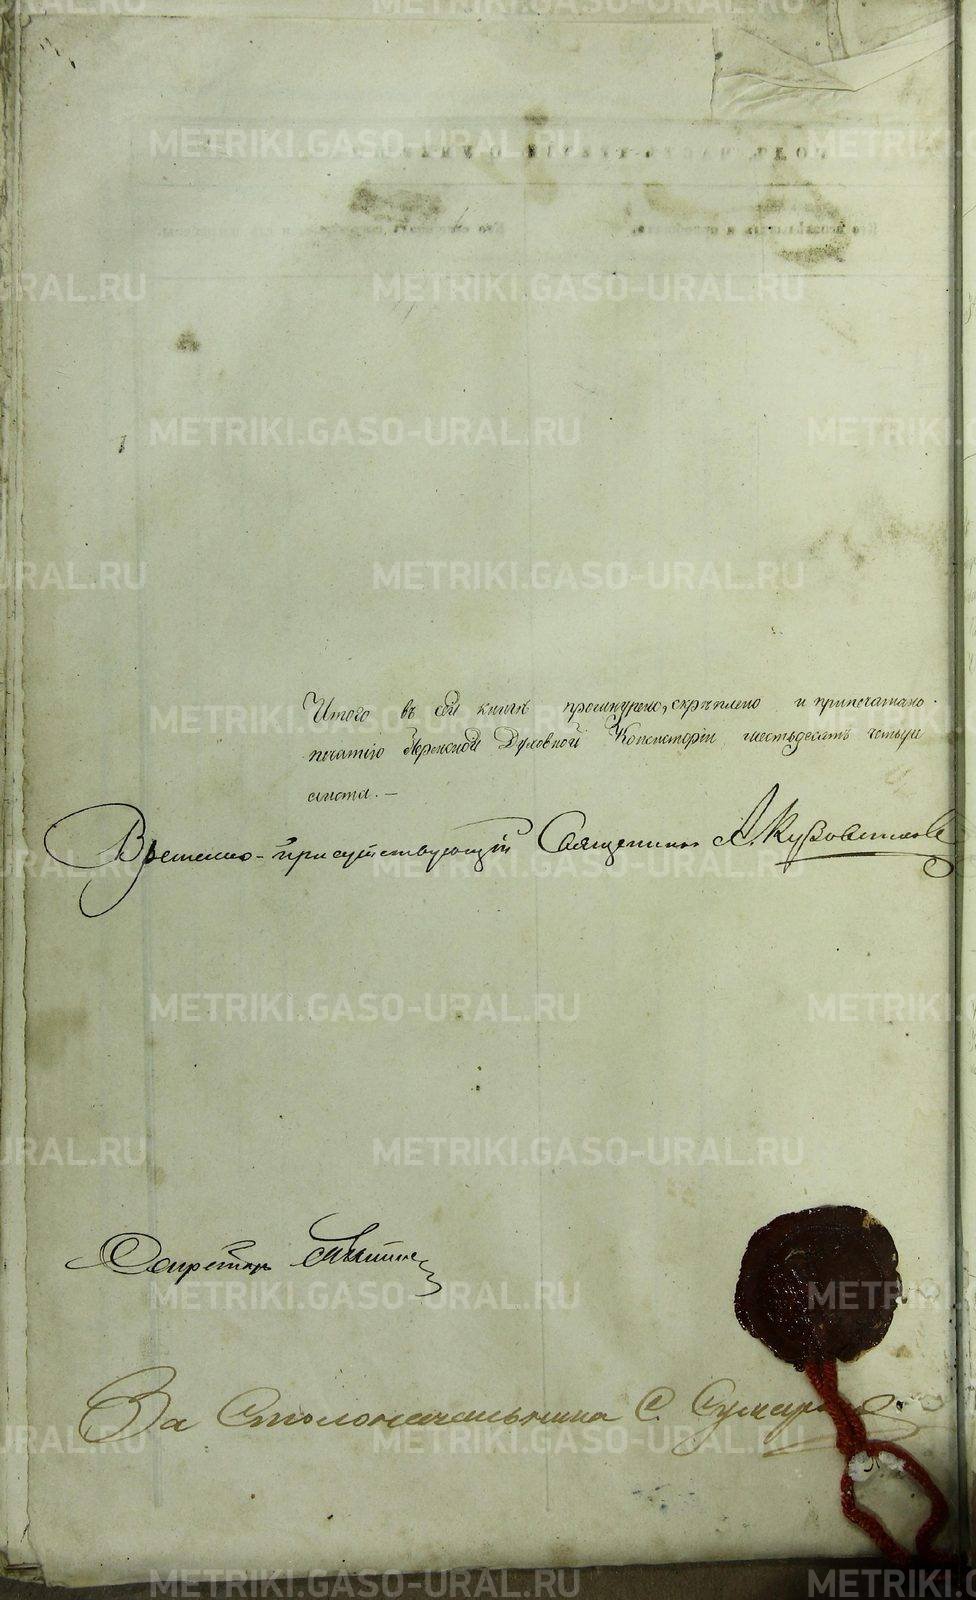 METRIKI.GASO-URAL.RU
Итого въ сей книгѣ прошнурено, скрѣплено и припечатано
печатію Пермской Духовной Консисторіи шестьдесятъ четыре
листа. —
Временно-присутствующій Священникъ А.
Секретарь
За Столоначальника С.